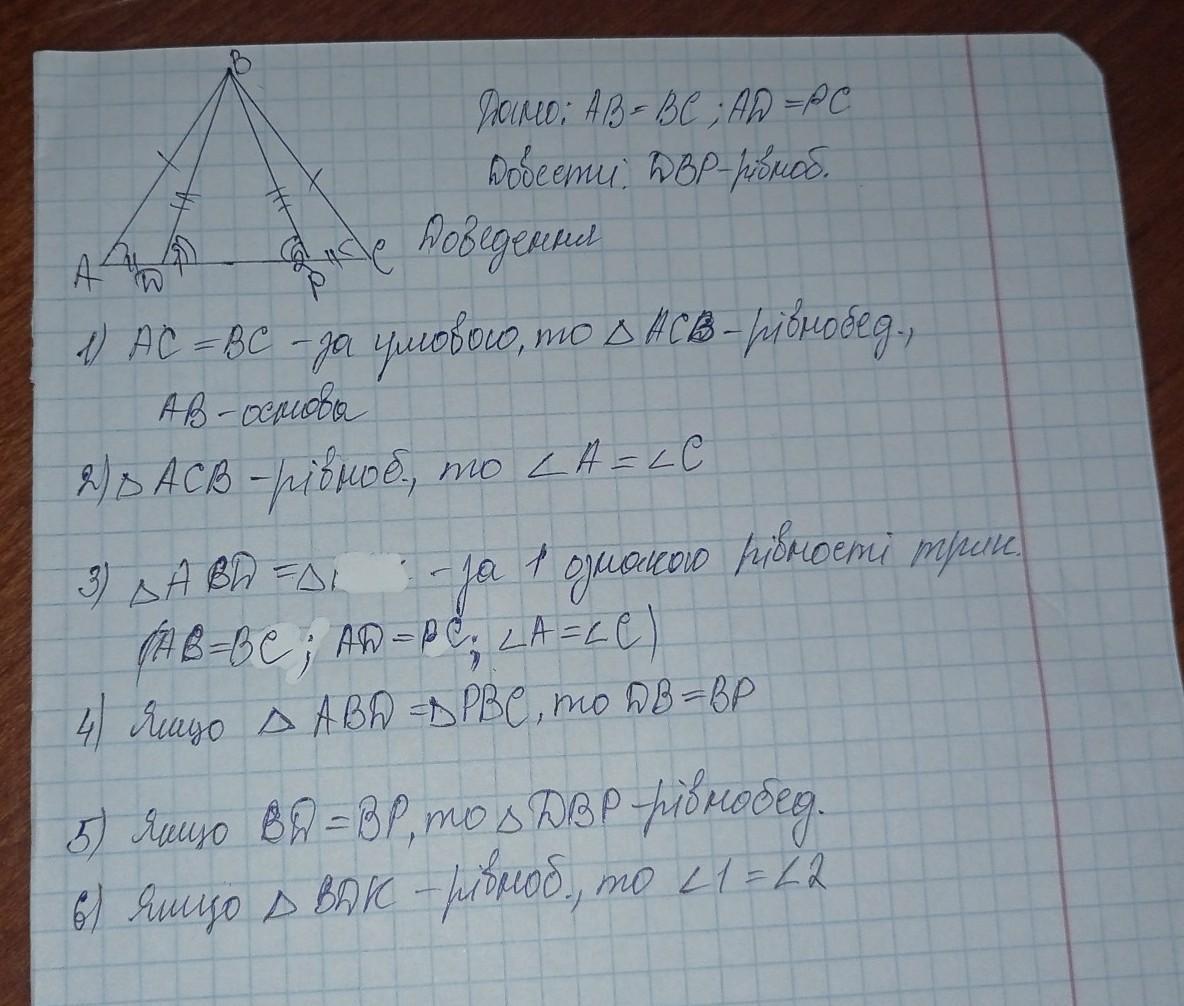 B
Дано: AB = BC ; AD = PC
Довести: DBP - рівноб.
Доведення
A D 1 2 P C
1) AC = BC - за умовою, то △ ACB - рівнобед.,
AB - основа
2) △ ACB - рівноб., то ∠A = ∠C
3) △ ABD = △ - за 1 ознакою рівності трик.
(AB = BC ; AD = PC ; ∠A = ∠C)
4) Якщо △ ABD = △ PBC, то DB = BP
5) Якщо BD = BP, то △ DBP - рівнобед.
6) Якщо △ BDK - рівноб., то ∠1 = ∠2